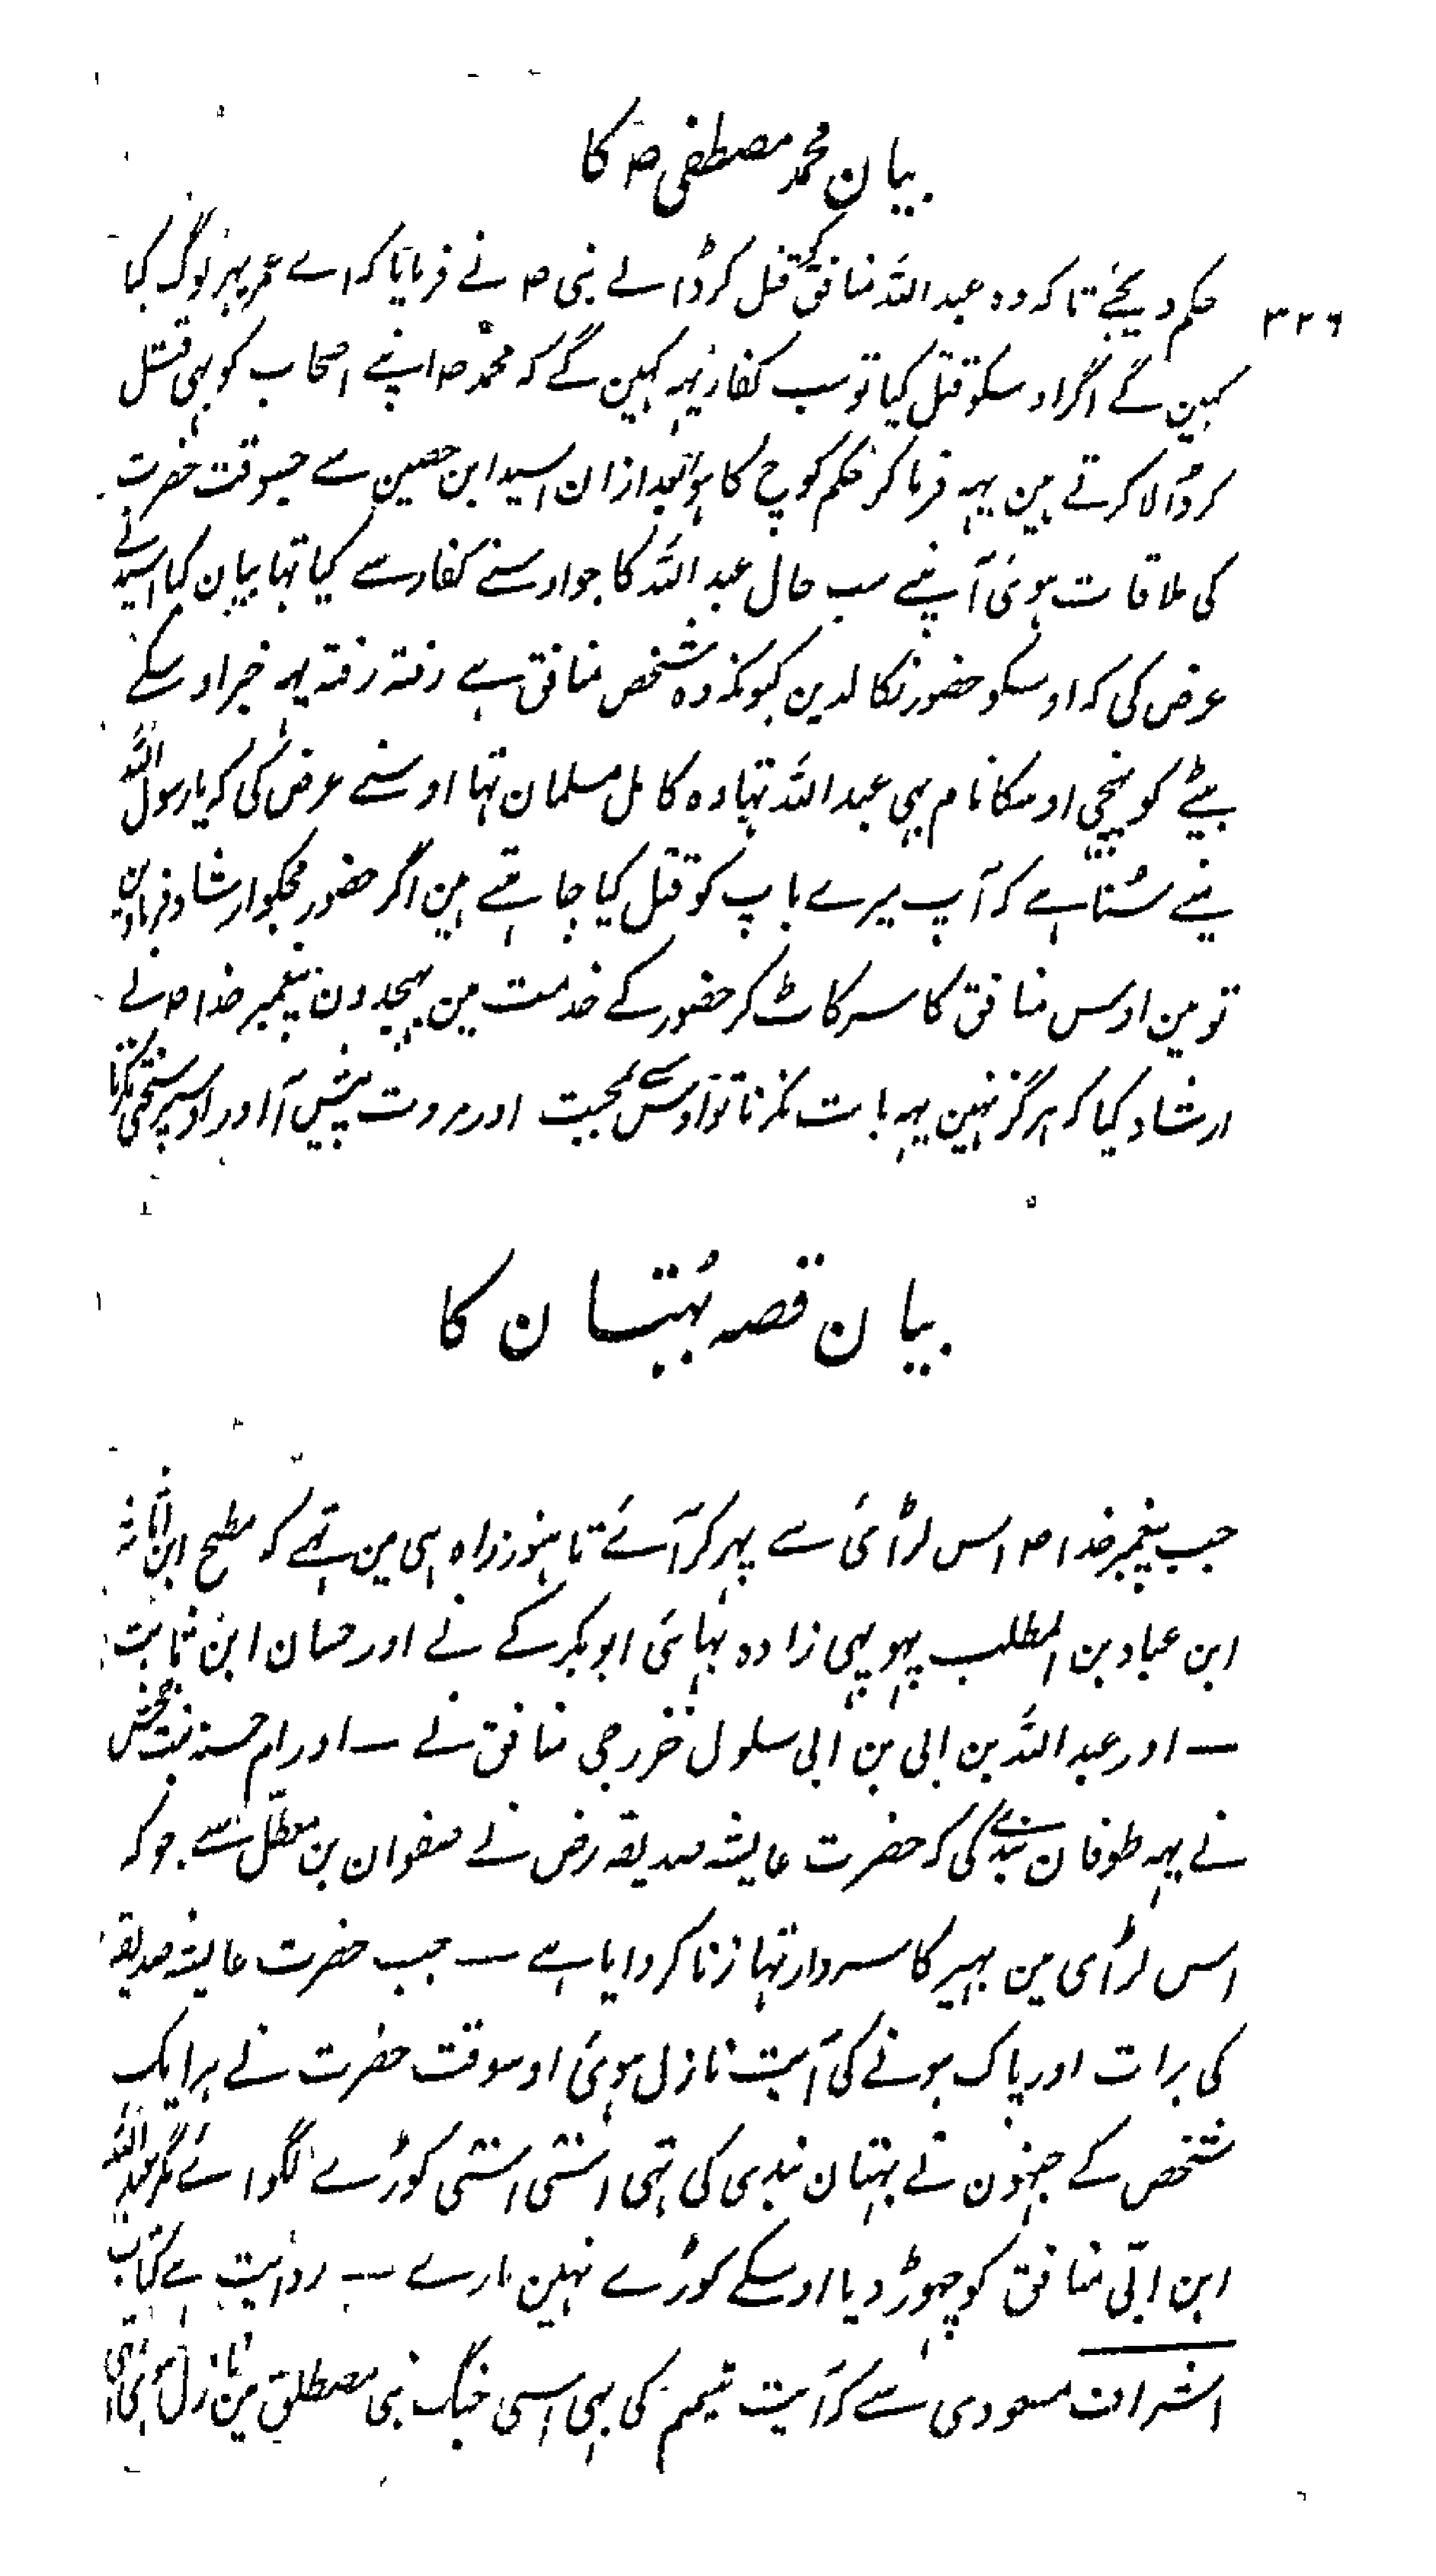 بیان محمد مصطفی ص کا
۳۲۶
حکم دیجئے تاکہ وہ عبد اللہ منافق کو قتل کر ڈالے نبی ص نے فرمایا کہ اے عمر پہر لوگ کیا
کہین گے اگر اوسکو قتل کیا تو سب کفار یہہ کہین گے کہ محمد ص اپنے اصحاب کو بہی قتل
کر ڈالا کرتے ہین یہہ فرما کر حکم کوچ کا ہوا بعد ازان اسید ابن حصین سے جسوقت حضرت
کی ملاقات ہوئی آپنے سب حال عبد اللہ کا جو اوسنے کفار سے کیا تہا بیان کیا اسید نے
عرض کی کہ اوسکو حضور نکالدین کیونکہ وہ شخص منافق ہے رفتہ رفتہ یہہ خبر اوسکے
بیٹے کو پہنچی اوسکا نام بہی عبد اللہ تہا وہ کامل مسلمان تہا اوسنے عرض کی کہ یا رسول اللہ
مینے سُنا ہے کہ آپ میرے باپ کو قتل کیا چاہتے ہین اگر حضور مجکو ارشاد فرماوین
تو مین اوس منافق کا سر کاٹ کر حضور کے خدمت مین بہیجدون پیغمبر خدا ص نے
ارشاد کیا کہ ہرگز نہین یہہ بات نکرنا تو اوس سے بمحبت اور مروت پیش آ اور اوسپر سختی نکرنا
بیان قصہ بُہتان کا
جب پیغمبر خدا ص اس لڑائی سے پہر کر آئے تا ہنوز راہ ہی مین تہے کہ مطح ابن اثاثہ
ابن عباد بن المطلب پہوپہی زادہ بہائی ابوبکر کے نے اور حسان ابن ثابت
— اور عبد اللہ بن ابی بن ابی سلول خزرجی منافق نے — اور ام حسنہ بنت جحش
نے یہہ طوفان بندی کی کہ حضرت عایشہ صدیقہ رض نے صفوان بن معطل سے جو کہ
اس لڑائی مین بہیر کا سردار تہا زنا کروایا ہے — جب حضرت عایشہ صدیقہ
کی برات اور پاک ہونے کی آیت نازل ہوئی اوسوقت حضرت نے ہر ایک
شخص کے جنہون نے بہتان بندی کی تہی اسّی اسّی کوڑے لگوائے مگر عبد اللہ
ابن ابّی منافق کو چہوڑ دیا اوسکے کوڑے نہین مارے — روایت ہے کتاب
اشراف مسعودی سے کہ آیت تیمم کی بہی اسی جنگ بنی مصطلق مین نازل ہوئی تہی